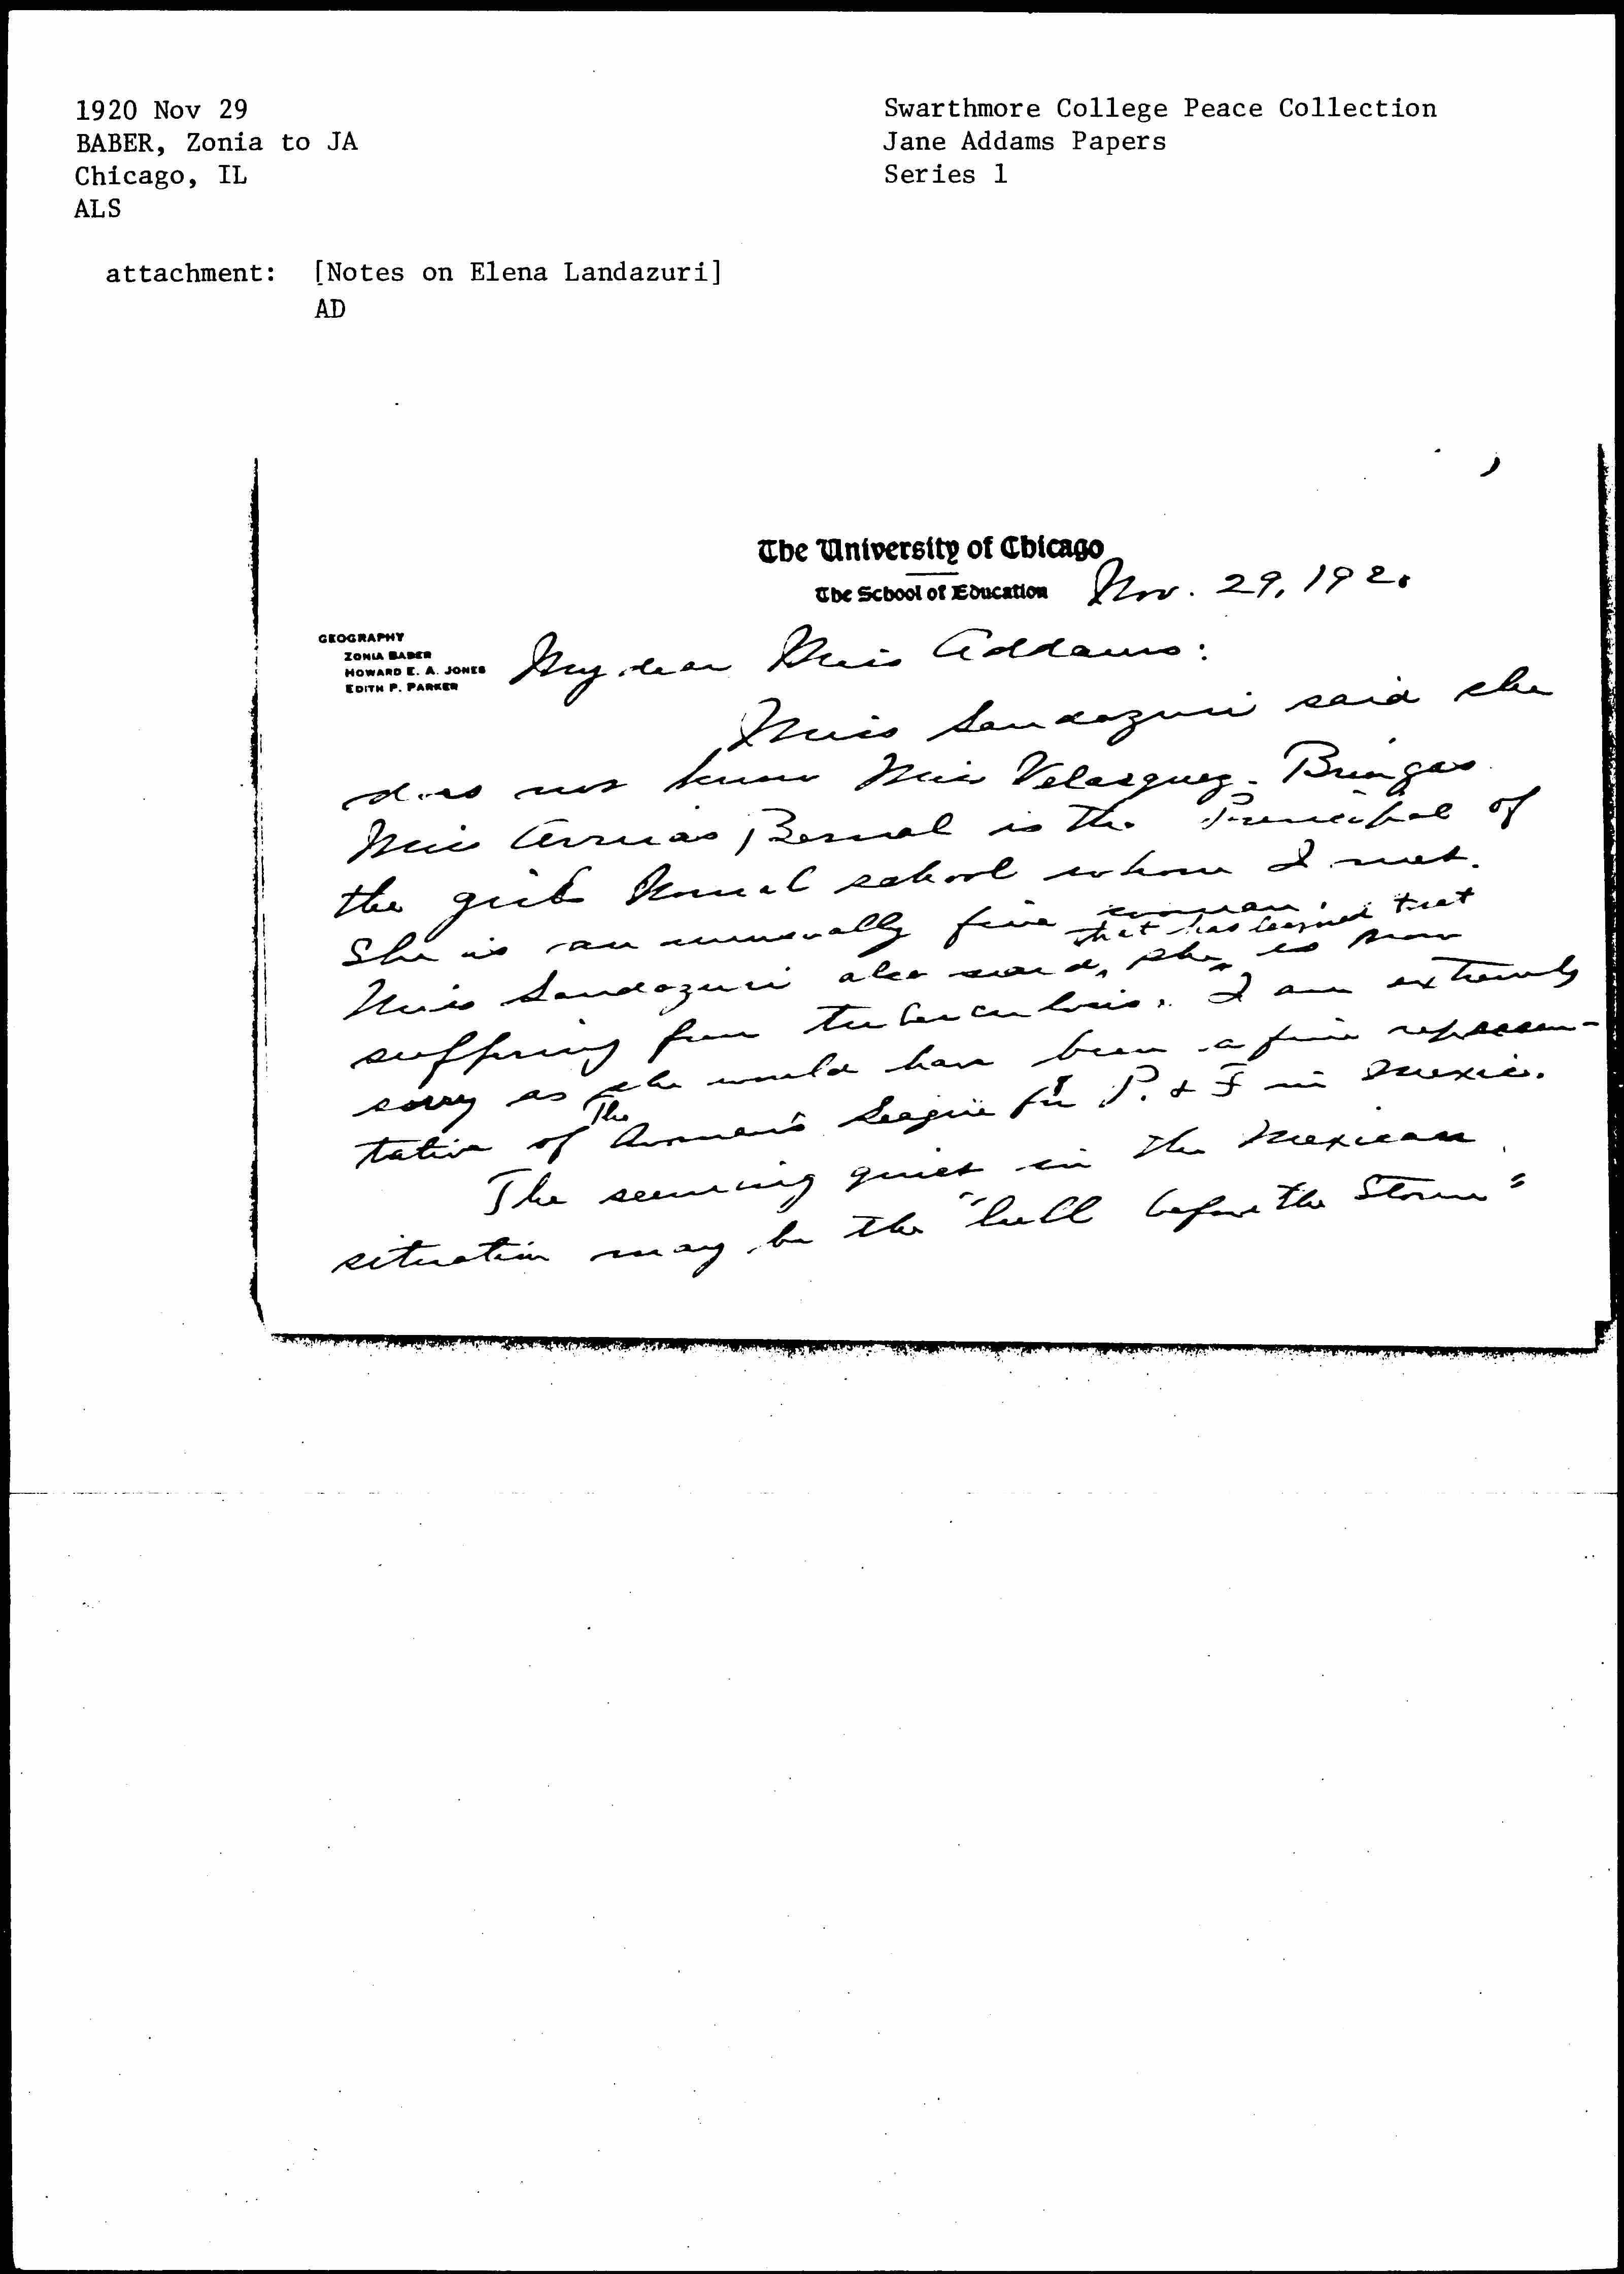 1920 Nov 29
BABER, Zonia to JA
Chicago, IL
ALS
attachment: [Notes on Elena Landazuri]
AD
Swarthmore College Peace Collection
Jane Addams Papers
Series 1
The University of Chicago
The School of Education
Nov. 29, 1920
GEOGRAPHY
ZONIA BABER
HOWARD E. A. JONES
EDITH P. PARKER
My dear Miss Addams:
Miss Landazuri said she
does not know Miss Velasquez-Bringas.
Miss Arrias Bernal is the Principal of
the girls Normal school whom I met.
She is an unusually fine woman.
that has learned that
Miss Landazuri also said, she is now
suffering from tuberculosis. I am extremely
sorry as she would have been a fine represen-
The
tative of Women's League for P. & F in Mexico.
The seeming quiet in the Mexican
situation may be the "lull before the Storm"